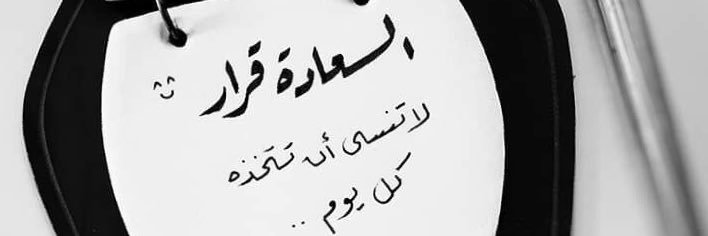 السعادة قرار
لا تنسى أن تتخذه
كل يوم ..